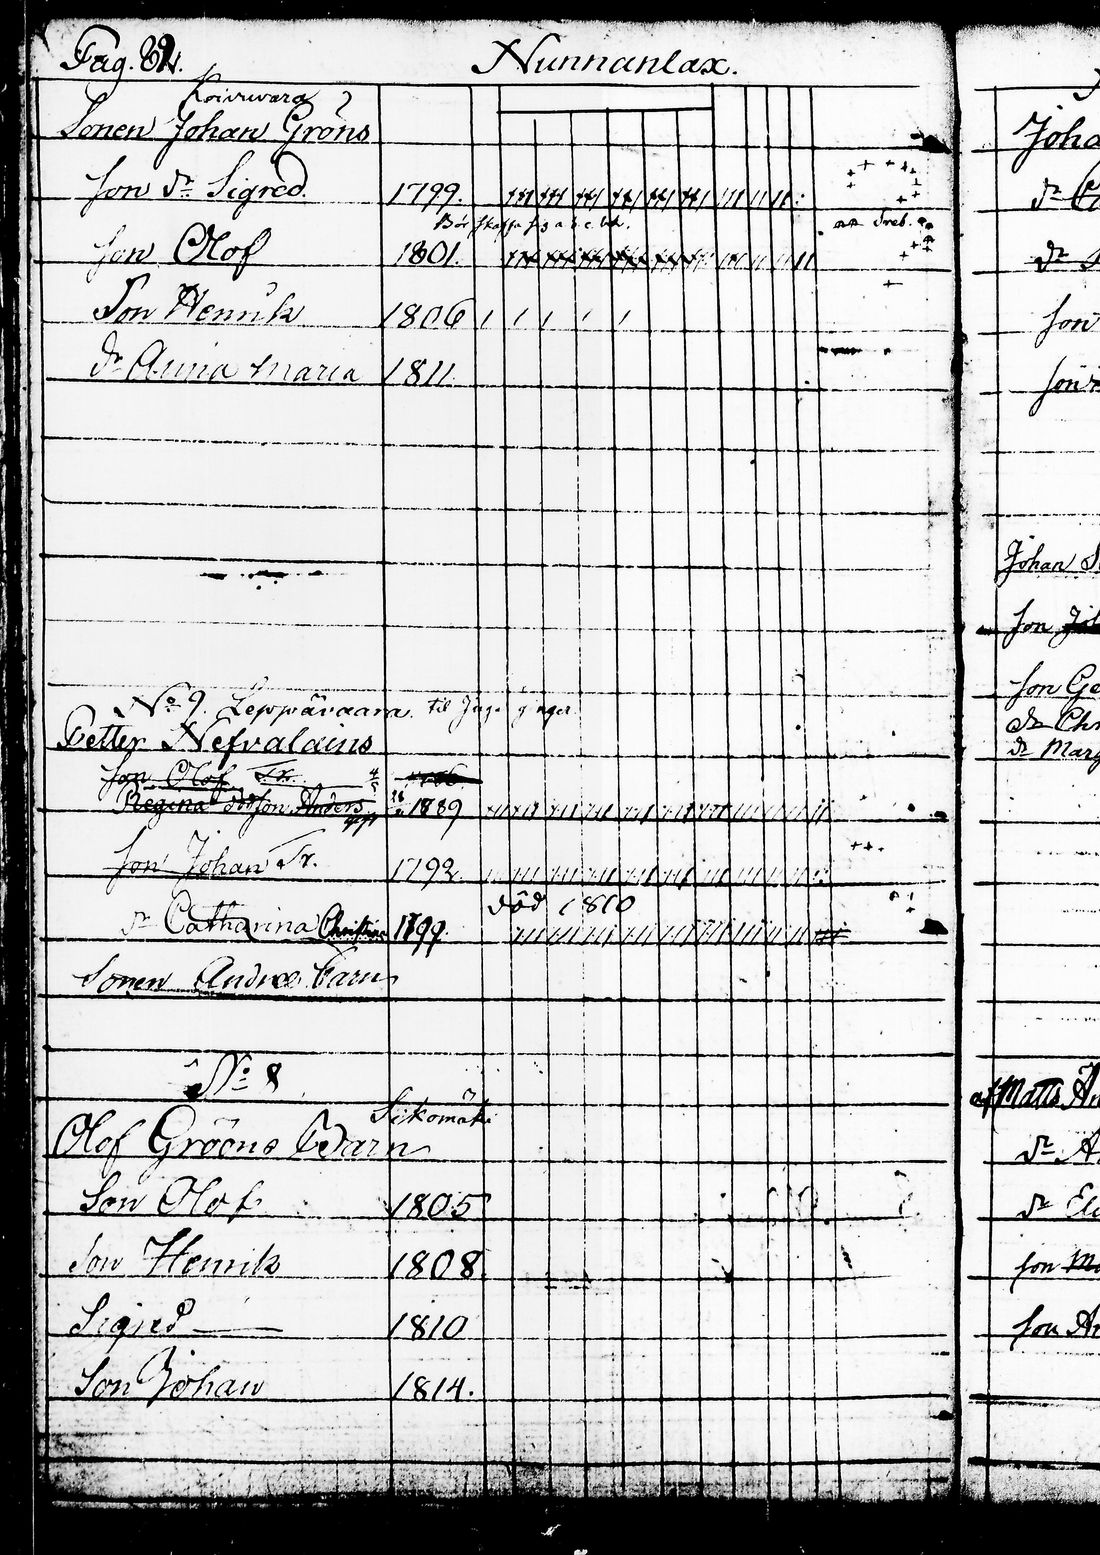 Pag. 82. Nunnanlax.
Koivuvara
Sonen Johan Gröns
son dr Sigred. 1799.
Bör skaffa sig a b c bok.
son Olof 1801.
Son Henrik 1806
dr Anna Maria 1811
No 9. Leppävaara. til
Petter Nefvalains
son Olof Fr.
Regina Anders 1889
son Johan Fr. 1792.
död 1810
dr Catharina Christina 1799.
Sonen Andreæ barn
No 8
Sikomäki
Olof Gröens Barn
Son Olof 1805
Son Henrik 1808.
Sigred 1810
Son Johan 1814.
Joha
dr
dr
son
son
Johan
son
son Ge
dr Chr
dr Mary
af Matts An
dr A
dr El
son Ma
son An